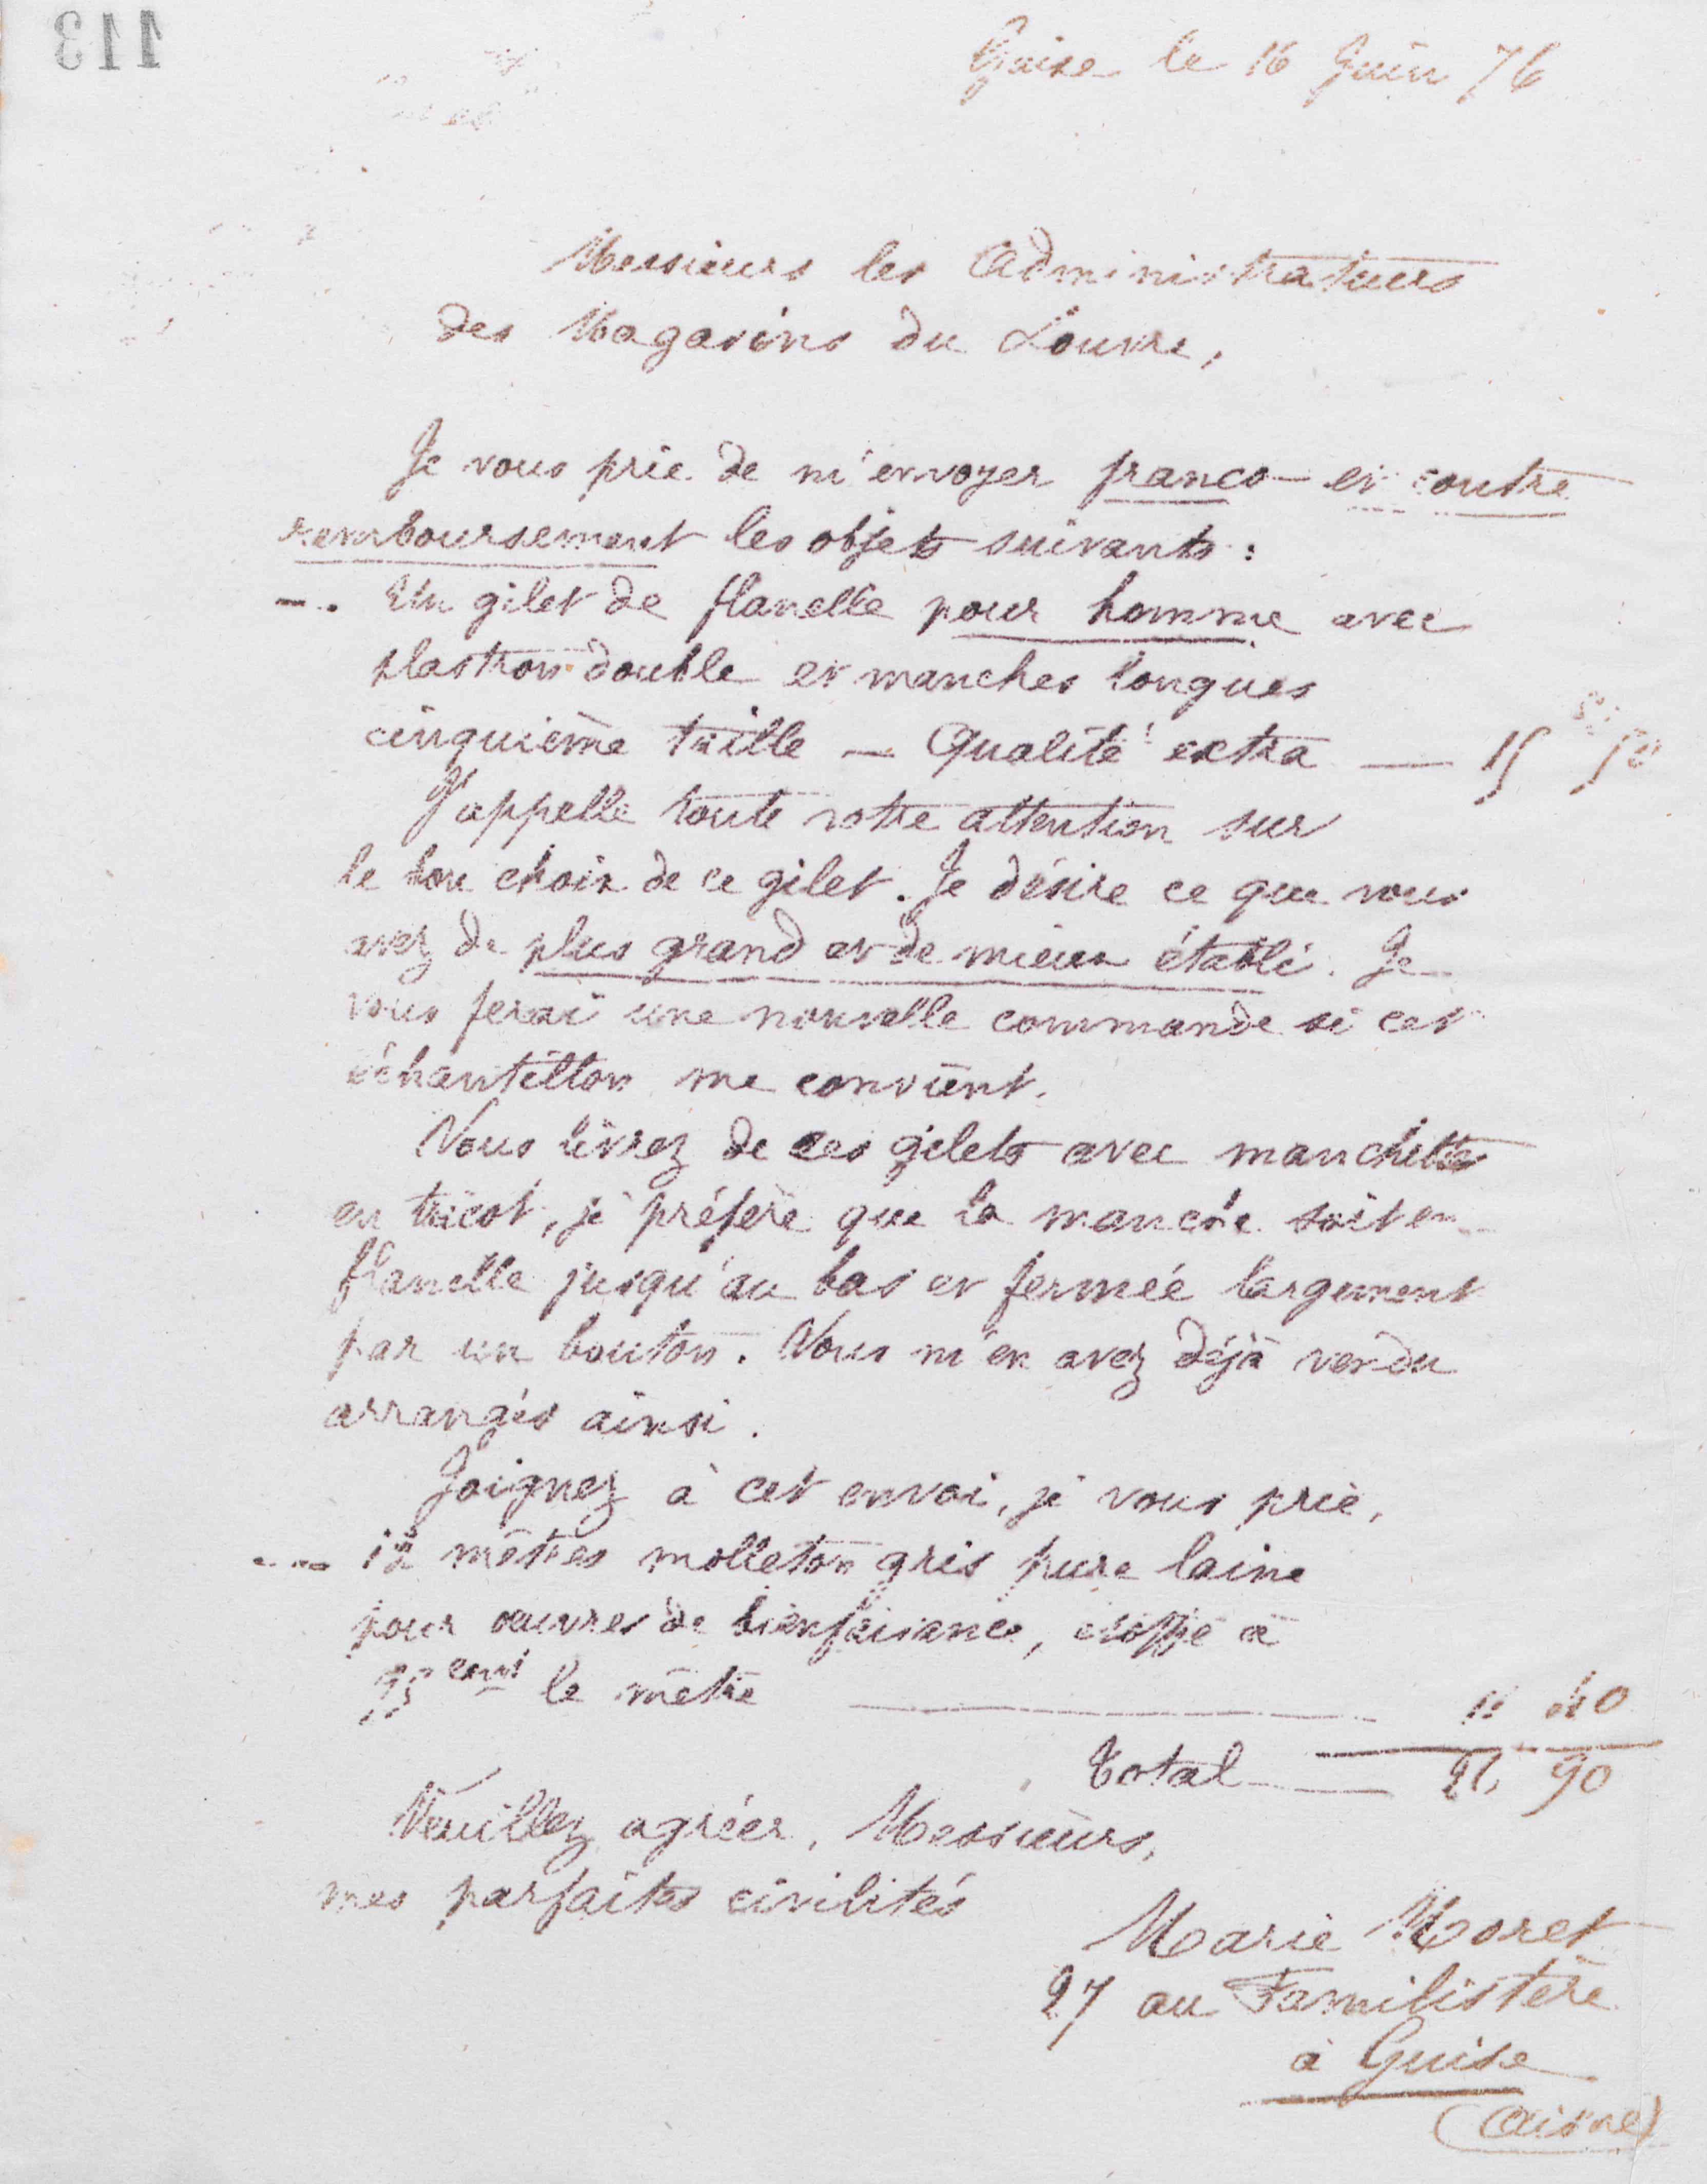 113
Guise le 16 Juin 76
Messieurs les Administrateurs
des Magasins du Louvre,
Je vous prie de m'envoyer franco et contre
remboursement les objets suivants :
—. Un gilet de flanelle pour homme avec
plastron double et manches longues
cinquième taille — Qualité extra — 15 50
J'appelle toute votre attention sur
le bon choix de ce gilet. Je désire ce que vous
avez de plus grand et de mieux établi. Je
vous ferai une nouvelle commande si cet
échantillon me convient.
Vous livrez de ces gilets avec manchettes
en tricot, je préfère que la manche soit en
flanelle jusqu'au bas et fermée largement
par un bouton. Vous m'en avez déjà vendu
arrangés ainsi.
Joignez à cet envoi, je vous prie,
— 12 mètres molleton gris pure laine
pour œuvres de bienfaisance, étoffe à
95 cent le mètre — 11 40
Total — 26, 90
Veuillez agréer, Messieurs,
mes parfaites civilités
Marie Moret
27 au Familistère
à Guise
(Aisne)